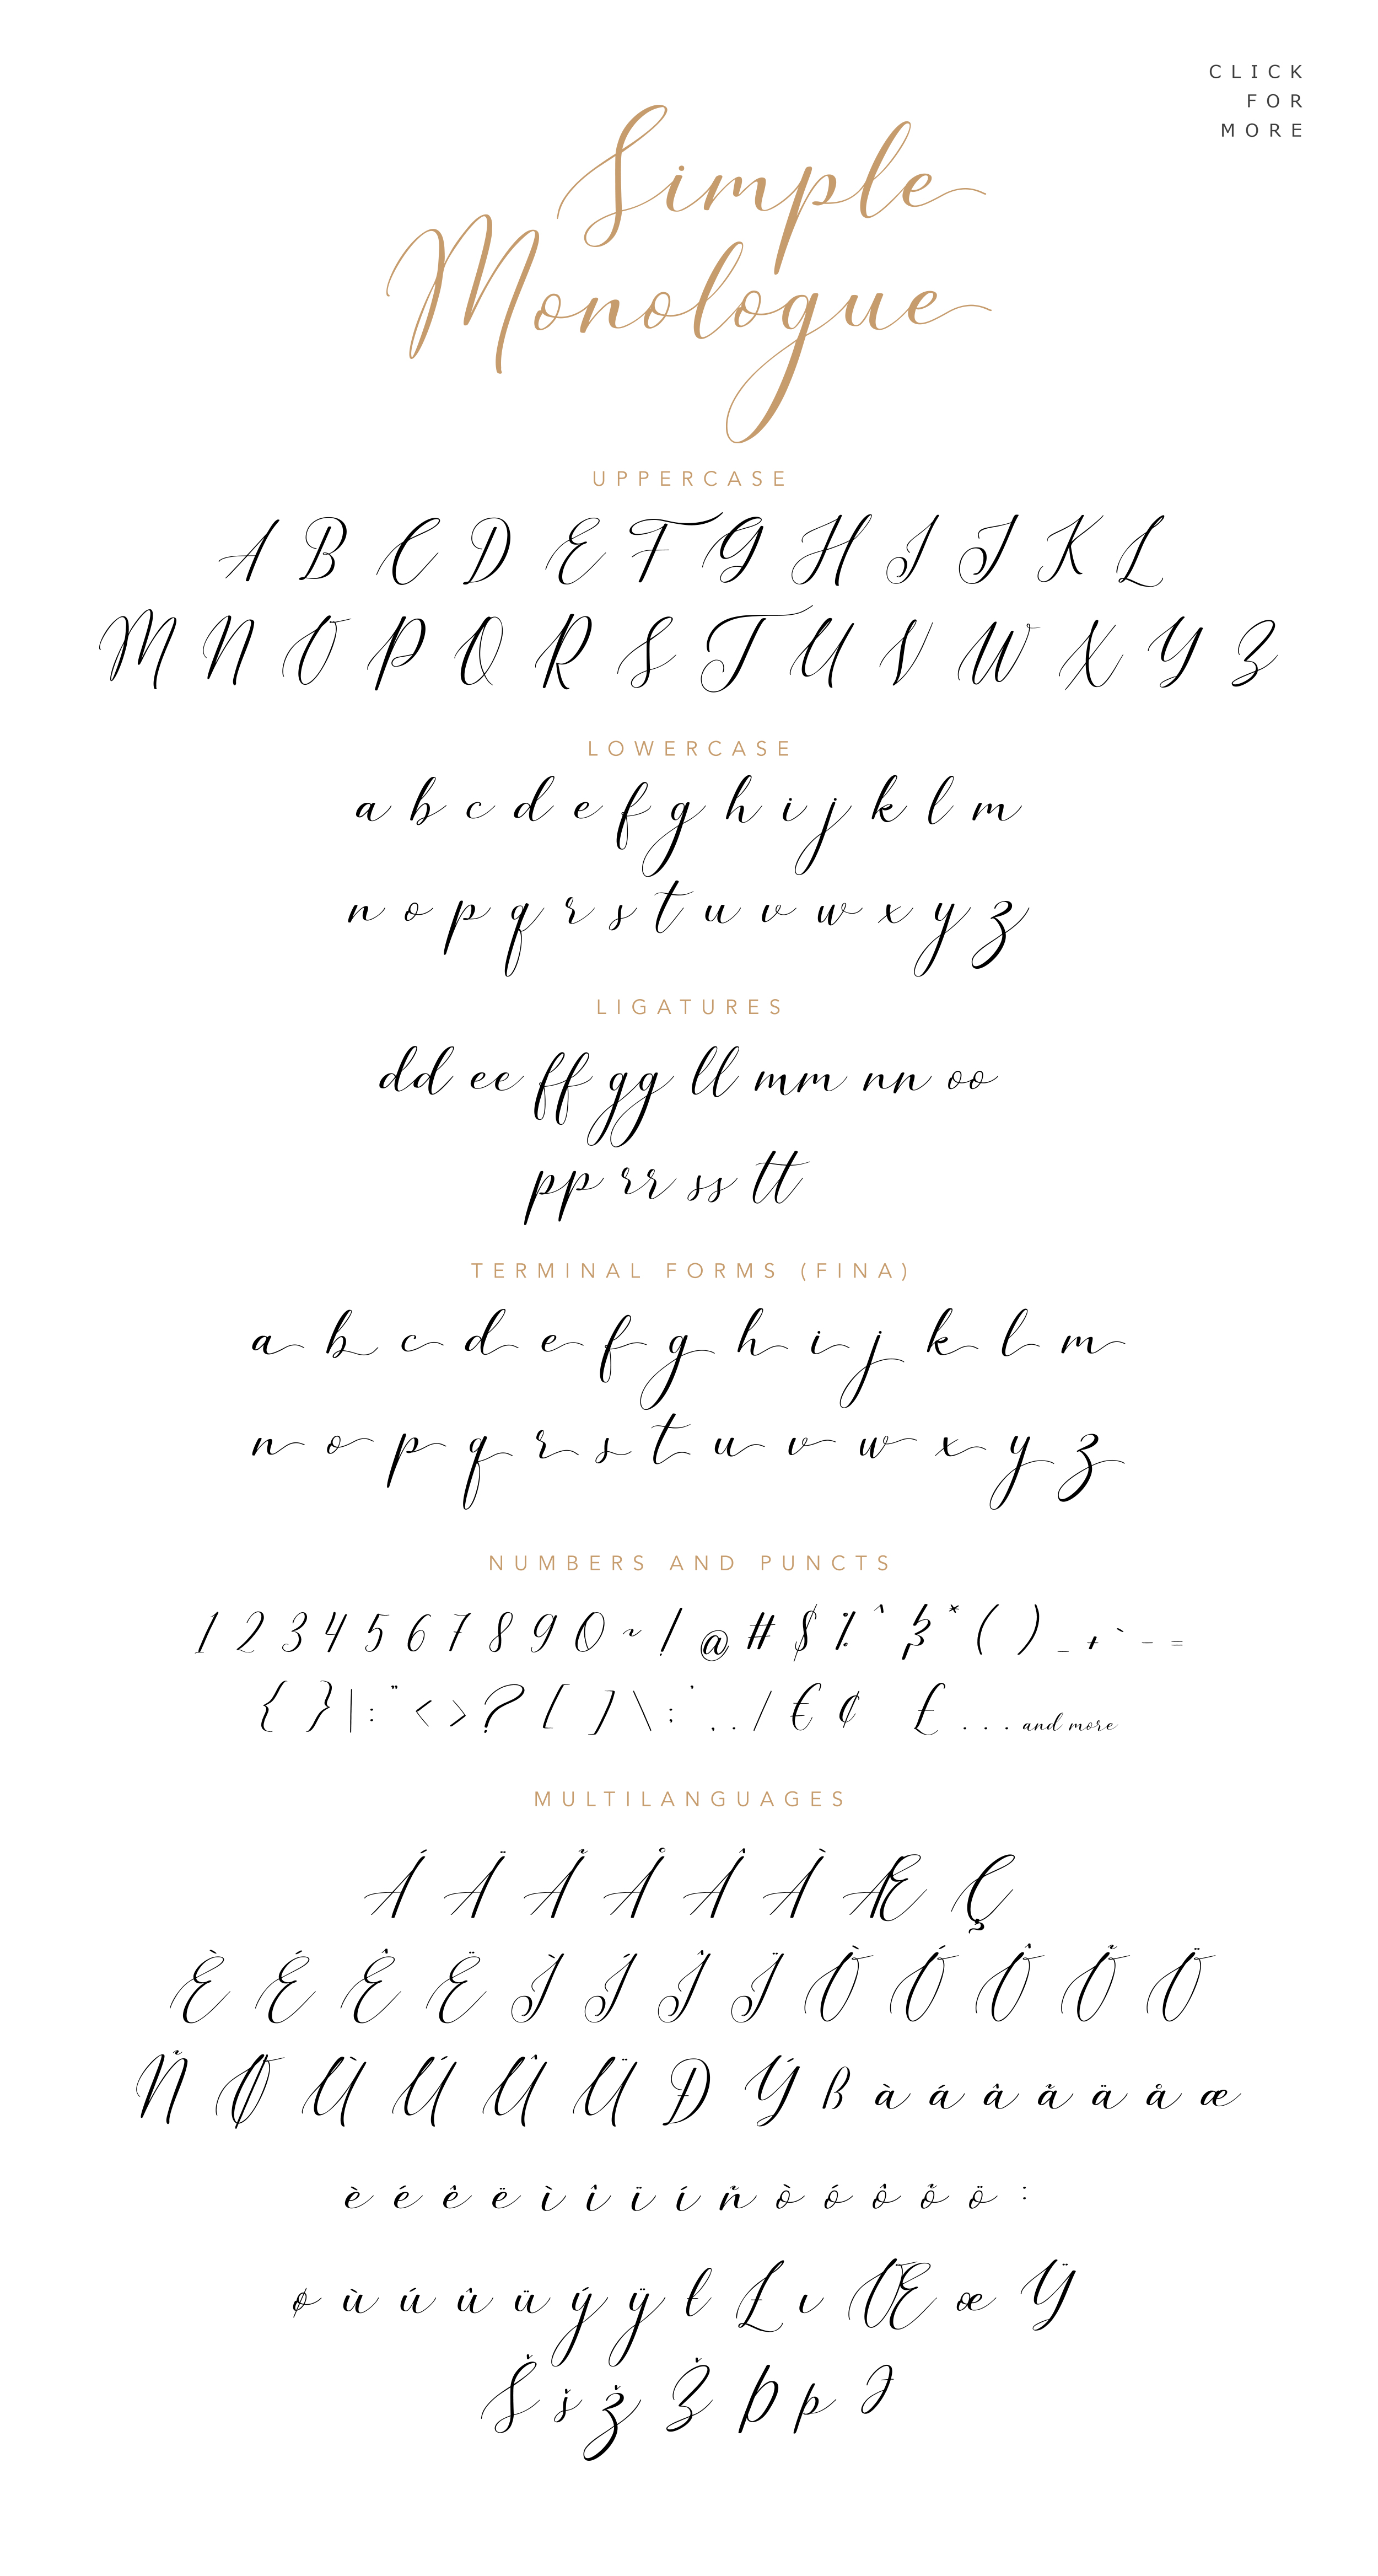 CLICK
FOR
MORE
Simple
Monologue
UPPERCASE
A B C D E F G H I J K L
M N O P Q R S T U V W X Y Z
LOWERCASE
a b c d e f g h i j k l m
n o p q r s t u v w x y z
LIGATURES
dd ee ff gg ll mm nn oo
pp rr ss tt
TERMINAL FORMS (FINA)
a b c d e f g h i j k l m
n o p q r s t u v w x y z
NUMBERS AND PUNCTS
1 2 3 4 5 6 7 8 9 0 ~ ! @ # $ % ^ & * ( ) _ + ` - =
{ } | : " < > ? [ ] \ ; ' , . / € ¢ £ . . . and more
MULTILANGUAGES
Á Ä Ã Å Â À Æ Ç
È É Ê Ë Ì Í Î Ï Ò Ó Ô Õ Ö
Ñ Ø Ù Ú Û Ü Ð Ý ß à á â ã ä å æ
è é ê ë ì î ï í ñ ò ó ô õ ö :
ø ù ú û ü ý ÿ ł Ł ı Œ œ Ÿ
Š š ž Ž Þ þ